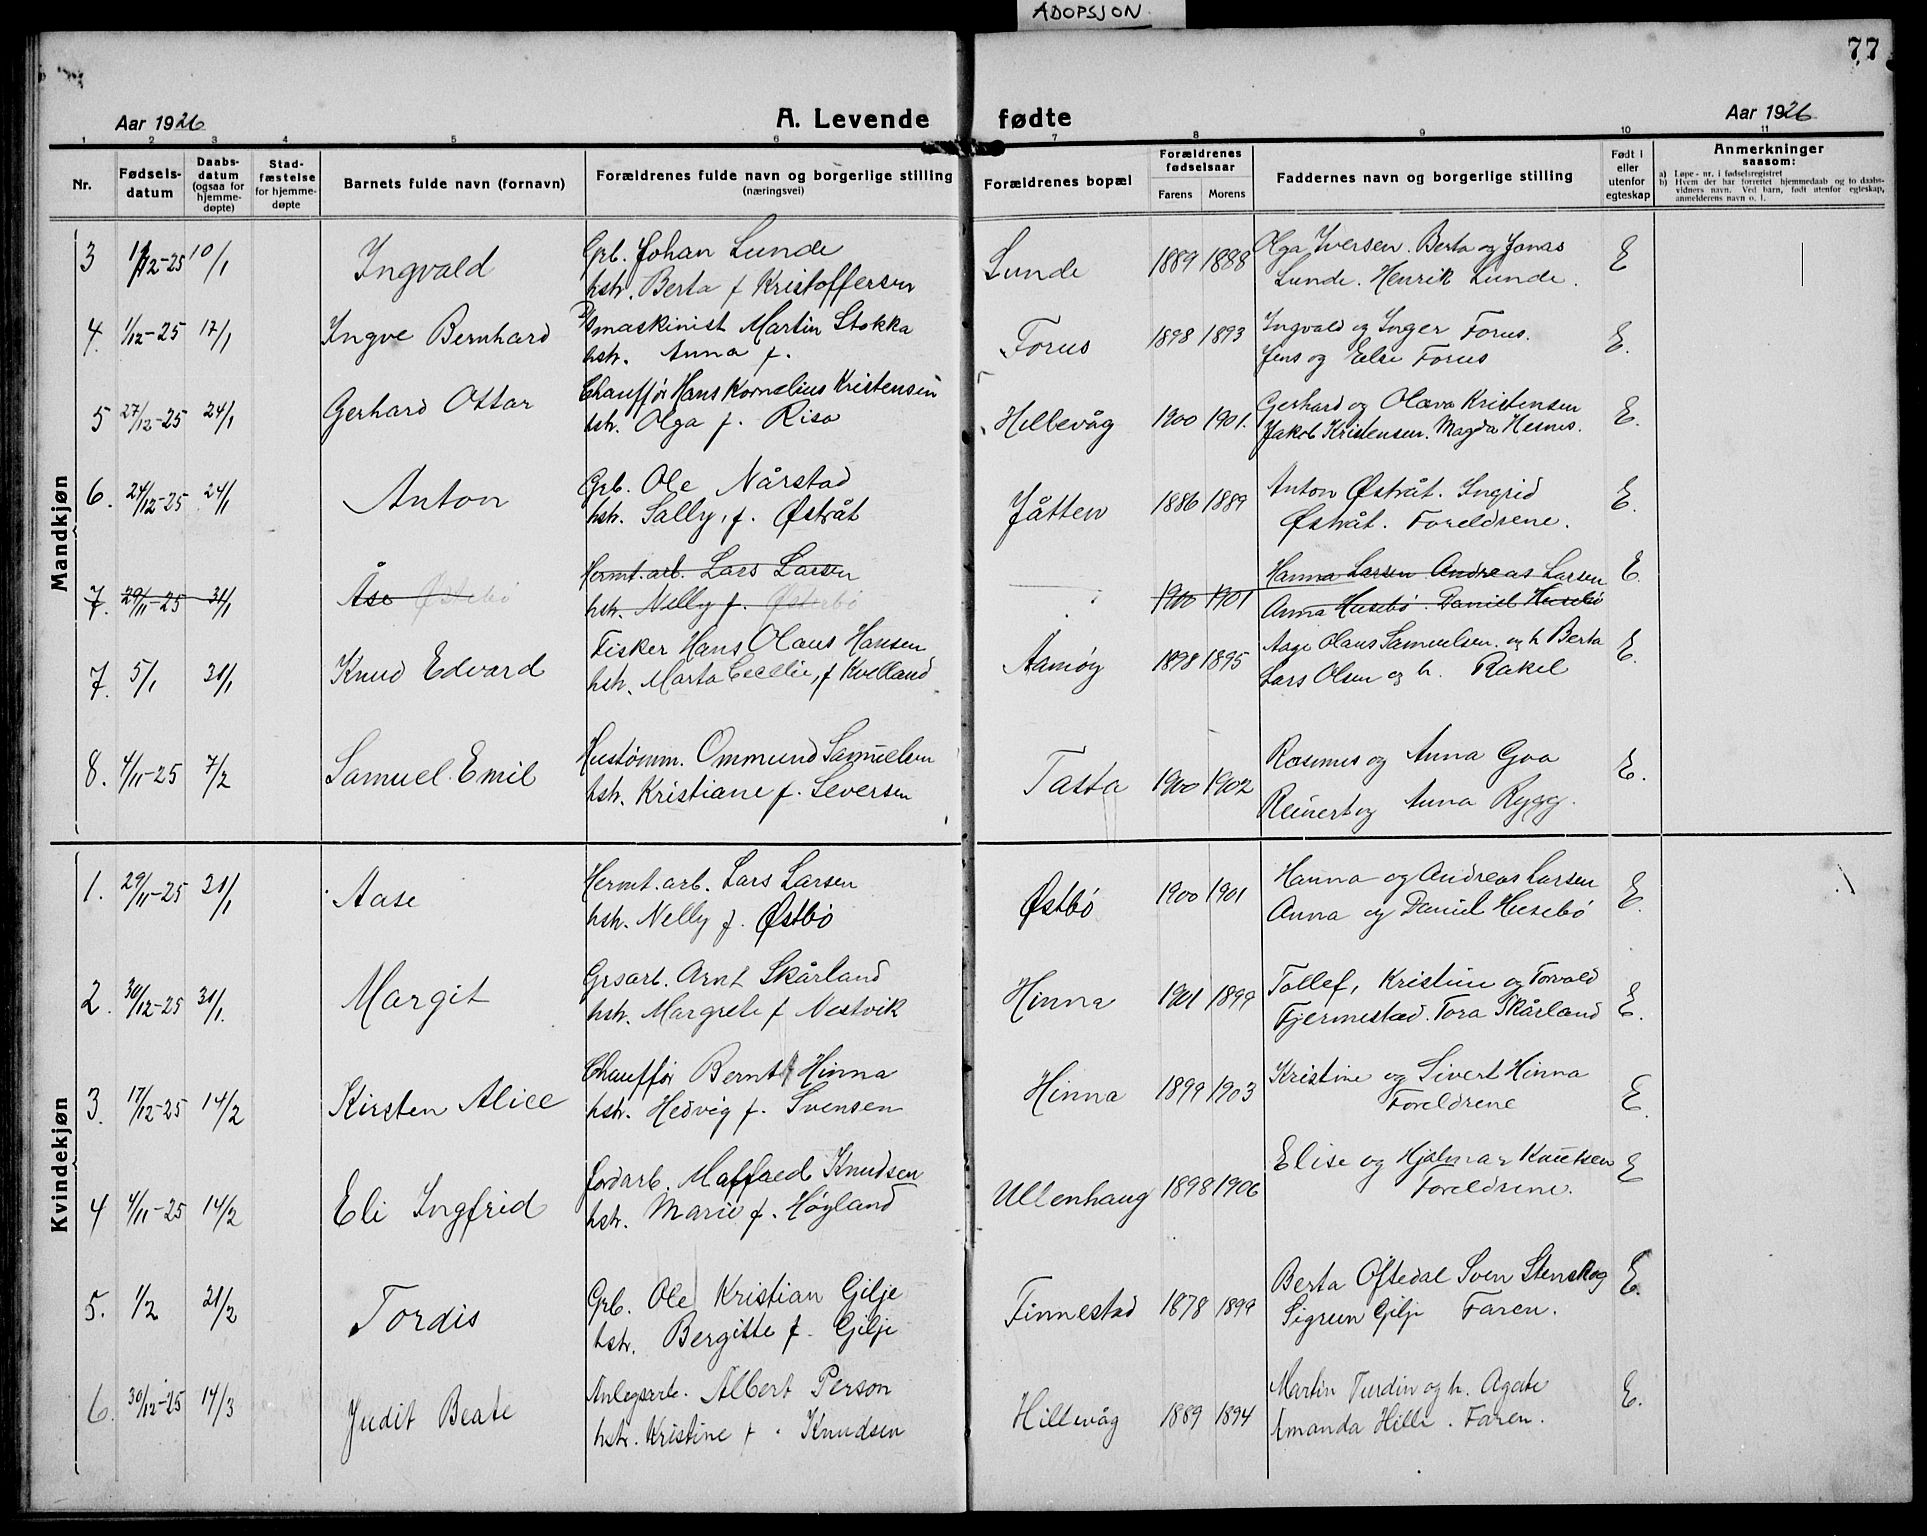 ADOPSJON
77
Aar 1926
A. Levende fødte
Aar 1926
1 2 3 4 5 6 7 8 9 10 11
Nr.
Fødsels-
datum
Daabs-
datum
(ogsaa for
hjemme-
døpte)
Stad-
fæstelse
for hjemme-
døpte
Barnets fulde navn (fornavn)
Forældrenes fulde navn og borgerlige stilling
(næringsvei)
Forældrenes bopæl
Forældrenes
fødselsaar
Farens Morens
Faddernes navn og borgerlige stilling
Født i
eller
utenfor
egteskap
Anmerkninger
saasom:
a) Løpe-nr. i fødselsregistret
b) Hvem der har forrettet hjemmedaab og to daabs-
vidners navn. Ved barn, født utenfor egteskap,
anmelderens navn o. l.
Mandkjøn
3 1/12-25 10/1 Ingvald Grb. Johan Lunde Lunde 1889 1888 Olga Iversen. Berta og Jonas E
hstr. Berta f Kristoffersen Lunde. Henrik Lunde.
4. 1/12-25 17/1 Ingve Bernhard maskinist Martin Stokka Forus 1898 1893 Ingvald og Inger Forus. E.
hstr. Anna f. Jens og Else Forus
5 27/12-25 24/1 Gerhard Ottar Chauffør Hans Kornelius Kristensen Hillevåg 1900 1901. Gerhard og Olava Kristensen E.
hstr. Olga f. Risa Jakob Kristensen. Magda Hesnes.
6. 24/12-25 24/1 Anton Grb. Ole Nårstad Jåtten 1886 1889 Anton Østråt. Ingrid E.
hstr. Sally, f. Østråt Østråt. Foreldrene.
7. 29/11-25 31/1 Åse Østebø Hermt. arb. Lars Larsen 1900 1901 Hanna Larsen Andreas Larsen E.
hstr. Nelly f. Østebø Anna Husebø. Daniel Husebø
7. 5/1 31/1 Knud Edvard Fisker Hans Olaus Hansen Aamøy 1898 1895 Aage Olaus Samuelsen. og h. Berta E.
hstr. Marta Cecilie, f Kvelland Lars Olsen og h. Rakel
8. 4/11-25 7/2 Samuel Emil Hustømm. Ommund Samuelsen Tasta 1900 1902 Rasmus og Anna Goa E.
hstr. Kristiane f. Seversen Reinert og Anna Rygg.
Kvindekjøn
1. 29/11-25 31/1 Aase Hermt. arb. Lars Larsen Østbø 1900 1901 Hanna og Andreas Larsen E.
hstr. Nelly f. Østbø Anna og Daniel Husebø
2. 30/12-25 31/1. Margit Grsarb. Arnt Skårland Hinna 1901 1899 Tollef, Kristine og Torvald E.
hstr. Margrete f Nestvik Fjermestad. Tora Skårland
3. 17/12-25 14/2 Kirsten Alice Chauffør Bernt Hinna Hinna 1899 1903 Kristine og Sivert Hinna E.
hstr. Hedvig f. Svensen Foreldrene
4 4/11-25 14/2 Eli Ingfrid Jordarb. Knudsen Ullenhaug 1898 1906 Elise og Hjalmar Knutsen E
hstr. Marie f. Høyland Foreldrene.
5. 1/2 21/2 Tordis Grb. Ole Kristian Gilje Finnestad 1878 1899 Berta Oftedal Sven Stenskog E.
hstr. Bergitte f. Gilje Sigrun Gilje Faren.
6. 30/12-25 14/3 Judit Beate Anlegsarb. Albert Person Hillevåg 1889 1894 Martin Turdin og h. Agate E.
hstr. Kristine f. Knudsen Amanda Hille. Faren.